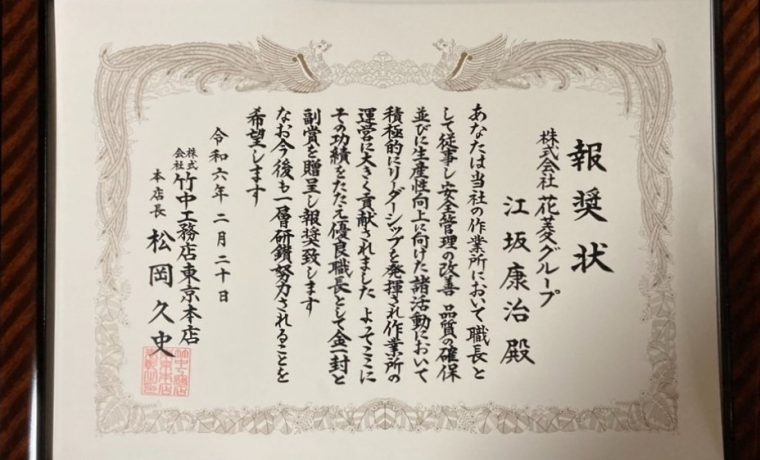 報奨状
株式会社 花菱グループ
江坂康治殿
あなたは当社の作業所において 職長と
して従事し安全管理の改善 品質の確保
並びに生産性向上に向けた諸活動において
積極的にリーダーシップを発揮され作業所の
運営に大きく貢献されました よってここに
その功績をたたえ優良職長として金一封と
副賞を贈呈し報奨致します
なお今後も一層研鑽努力されることを
希望します
令和六年 二月 二十日
株式会社 竹中工務店東京本店
本店長 松岡久史